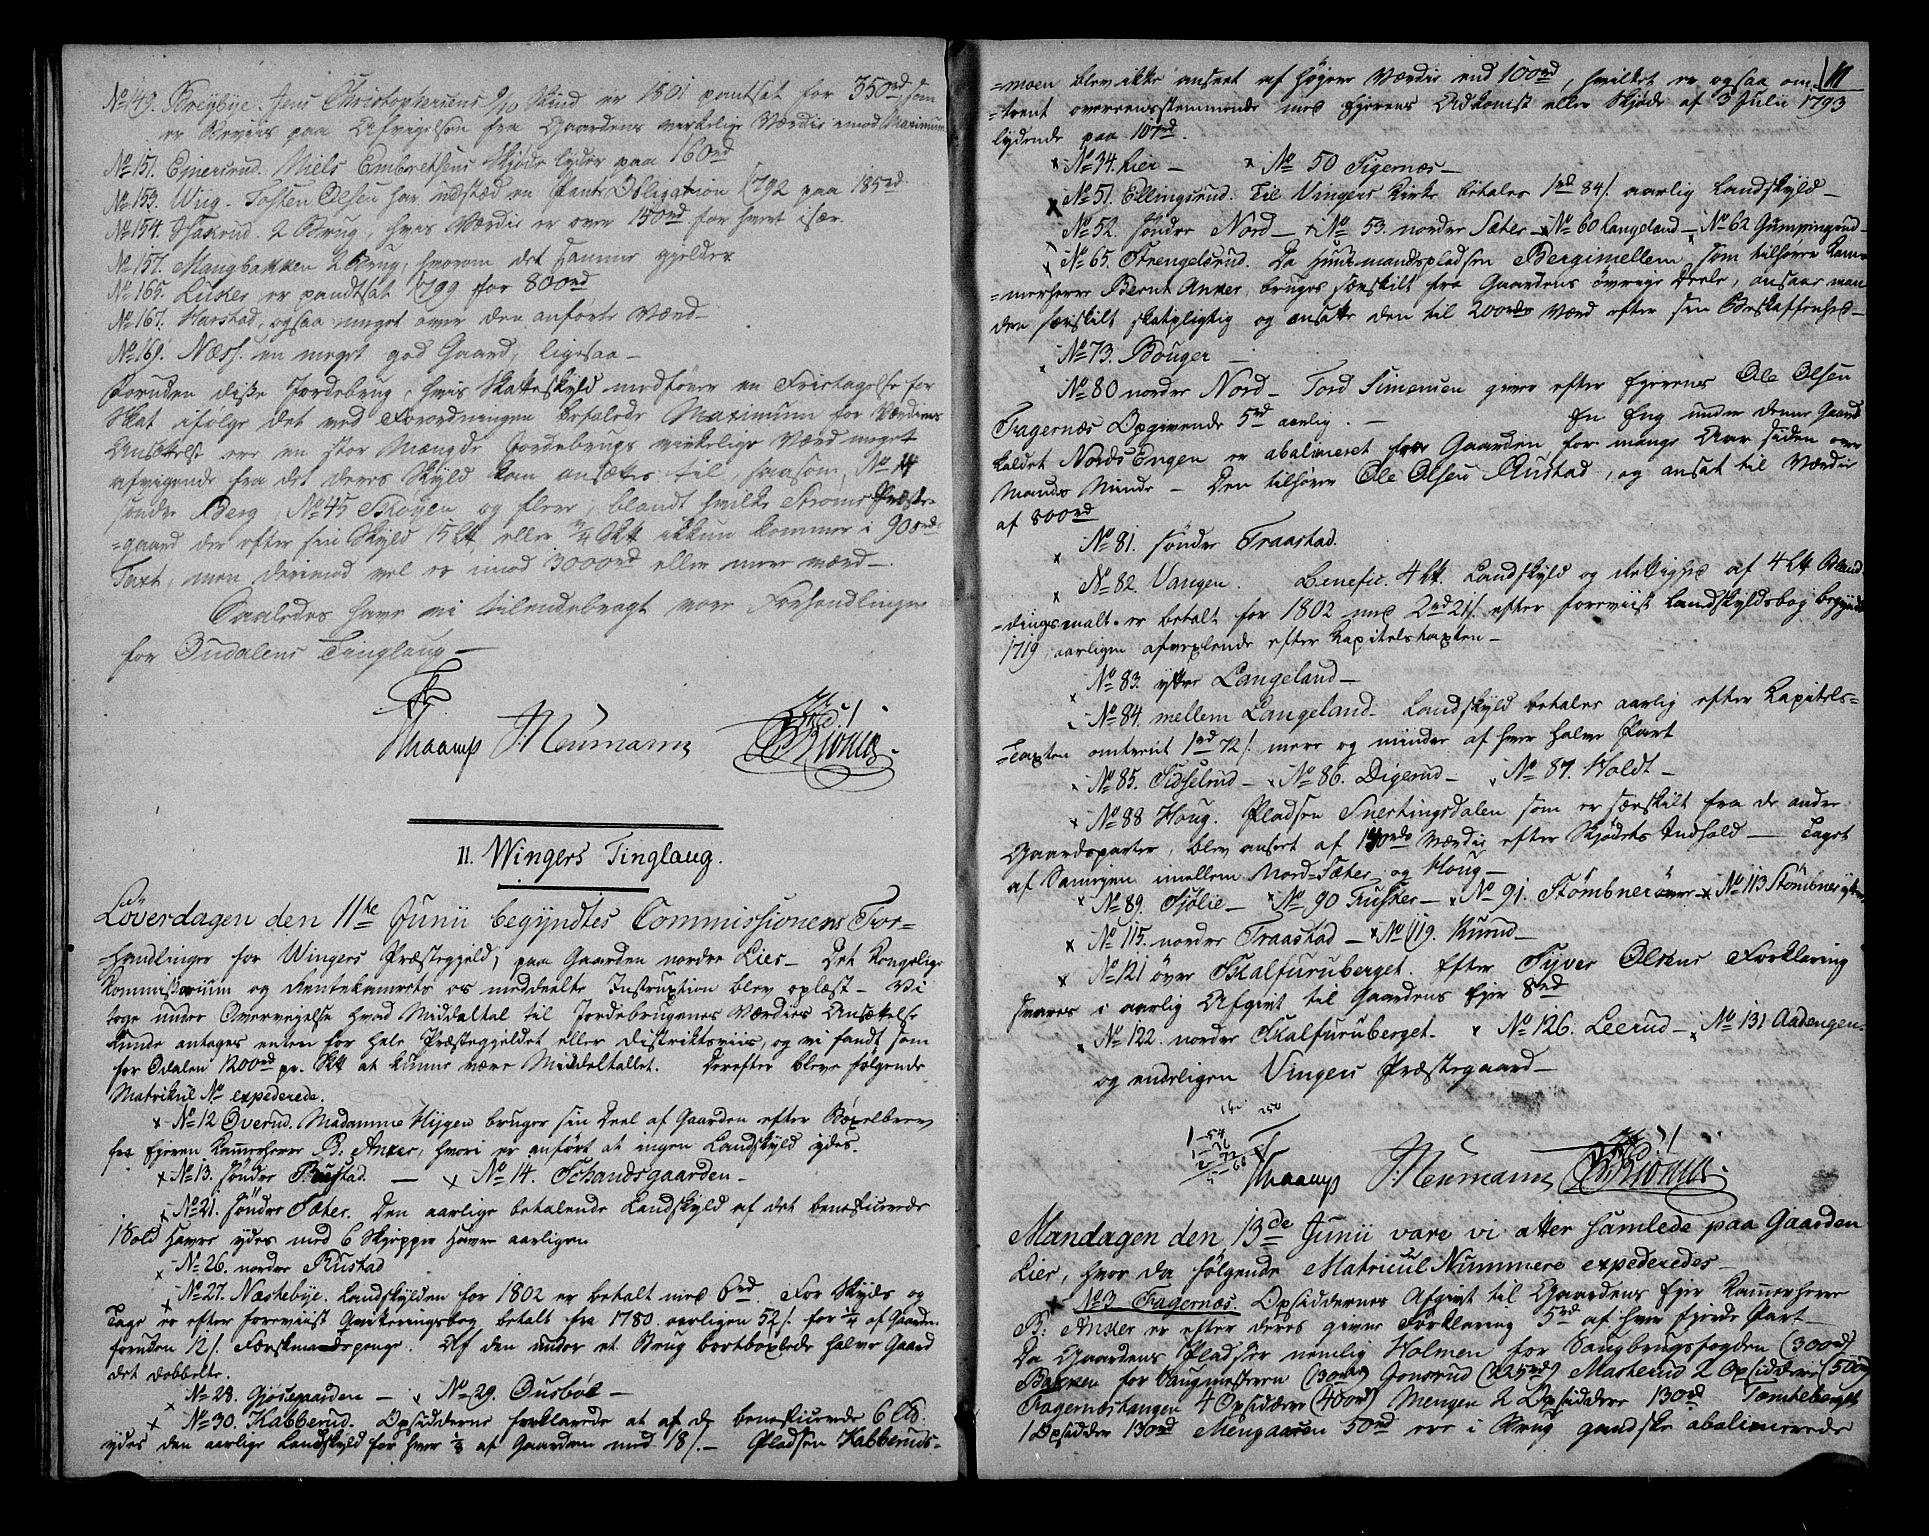 No 149. Breybye. Jens Christophersens 9/10 Skind er 1801 pantsat for 350rd, som
er Beviis paa Afvigelsen fra Gaardens virkelige Værdie imod Maximum
No 151. Ejnersrud. Niels Embretsens Skjøde lyder paa 160rd
No 153. Wug. Tosten Olsen har udstæd en Pante Obligation 1792 paa 185rd
No 154. 2 Brug, hvis Værdie er over 150rd for hvert især.
No 157. Maugbakken 2 Brug, hvorom det samme gjelder
No 165. Lusker er pandtsat 1799 for 800rd
No 167. Harstad, ogsaa meget over den anførte Værd—
No 169. Næss. en meget god Gaard, ligesaa—
Foruden disse Jordebrug, hvis Skatteskyld medfører en Fritagelse for
Skat ifølge det ved Forordningen befalede Maximum for Værdiens
Ansættelse ere en stor Mængde Jordebrugs virkelige Værd meget
afvigende fra det deres Skyld kan ansættes til saasom, No 14
søndre Berg, No 45 Skogen og flere, blandt hvilke Strøms Præste-
=gaard der efter sin Skyld 15 L℔, eller 3/4 Sk℔ ikkun kommer i 900rds
Taxt, men derimod vel er imod 3000rd eller mere værd—
Saaledes have vi tilendebragt vore Forhandlinger
for Oudalens Tinglaug—
Thaarup J. Neumann
11. Wingers Tinglaug.
Løverdagen den 11te Junii begyndtes Commissionens For=
handlinger for Wingers Præstegjeld, paa Gaarden nordre Lier— Det Kongelige
Kommissorium og Rentekamerets os meddeelte Instruction blev oplæst— Vi
toge under Overveielse hvad Middeltal til Jordebrugenes Værdies Ansættelse
kunde antages enten for hele Præstegjeldet eller Districtsviis, og vi fandt som
for Odalen 1200rd pr. Sk℔ at kunne være Middeltallet. Derefter bleve følgende
Matrikul No expederede.
x No 12 Overud. Madamme Hijgen bruger sin Deel af Gaarden efter Bøxelbrev
fra Ejeren Kammerherre B: Anker, hvori er anført at ingen Landskyld ydes.
x No 13. søndre Rustad. — x No 14. Schandsgaarden—
x No 21. søndre Sæter. Den aarlige betalende Landskyld af det beneficerede
18old Havre ydes med 6 Skjepper Havre aarligen
x No 26. nordre Rustad
x No 27. Næstebye. Landskylden for 1802 er betalt med 6rd. For Skyds og
Tage er efter foreviist Qvitteringsbog betalt fra 1780 aarligen 52/. for 1/4 af Gaarden
foruden 12/. Forstmandspenge. Af den under et Brug bortbøxlede halve Gaard
det dobbelte.
x No 28. Gjøsegaarden— x No 29. Ousbøl—
x No 30. Kabberud. Opsidderne forklarede at af de beneficerede 6 L℔
ydes den aarlige Landskyld for hver 1/3 af Gaarden med 18/.— Pladsen Kabberuds=
11
=moen blev ikke anseet af høyere Værdie end 100rd, hvilket er ogsaa om=
=trent overeensstemmende med Ejerens Adkomst eller Skjøde af 3 Julii 1793
lydende paa 107rd.
x No 34. Lier— x No 50 Tigernæs—
x No 51. Ellingsrud. Til Vingers Kirke betales 1rd 84/. aarlig Landskyld—
x No 52. søndre Nord— x No 53. nordre Sæter— x No 60 Langeland— x No 62 Gumpingrud—
x No 65. Strengelsrud. Da Huusmandspladsen Bergimellem, som tilhører Kam=
=merherre Bernt Anker, bruges særskilt fra Gaardens øvrige Deele, ansaae man
den særskilt skatpligtig og ansatte den til 200rds Værd efter sin Beskaffenhed—
x No 73. Bouger—
No 80 nordre Nord— Tord Simensen giver efter Ejerens Ole Olsen
Fagernæs Opgivende 5rd aarlig.— En Eng under denne Gaard
kaldet Nords Engen er abalieneret fra Gaarden for mange Aar siden over
Mands Minde— Den tilhører Ole Olsen Rustad, og ansat til Værdie
af 800rd
x No 81. søndre Traastad.
x No 82. Vangen. Benefic. 4 L℔. Landskyld og Rettighed af 4 L℔ Bland
=dingsmalt er betalt for 1802 med 2rd 21/. efter foreviist Landskyldsbog begyndt
1719, aarligen afvexlende efter Kapitelstaxten—
x No 83. ytre Langeland—
x No 84. mellem Langeland— Landskyld betales aarlig efter Kapitels=
=Taxten omtrent 1rd 72/. mere og mindre af hver halve Part
x No 85. Tidselrud— x No 86. Digerud— x No 87. Holdt—
x No 88 Houg. Pladsen Snertingsdalen som er særskilt fra de andre
Gaardsparter, blev anseet af 190rds Værdie efter Skjødets Indhold— Taget
af Sameyen imellem Nord=Sæter og Houg—
x No 89. Sjølie— x No 90 Trusker— x No 91. Stømbner øvre— x No 113 Stømbner ytre
x No 115. nordre Traastad— x No 119. Kurud—
x No 121 øvre Skalfuruberget. Efter Syver Olsens Forklaring
svares i aarlig Afgivt til Gaardens Ejer 8rd
x No 122. nordre Skalfuruberget. x No 126. Leerud— x No 131 Aadengen=
og endeligen Vingers Præstegaard—
Thaarup J. Neumann
Mandagen den 13de Junii vare vi atter samlede paa Gaarden
Lier, hvor da følgende Matricul Nummere expederedes—
x No 3. Fagernæs. Opsiddernes Afgivt til Gaardens Ejer Kammerherre
B: Anker er efter deres givne Forklaring 5rd af hver fjerde Part—
Da Gaardens Pladser nemlig Holmen for Saugbrugsfogden (300rd)
Bakken for Saugmesteren (130rd) Gonsrud (225rd) Masterud 2 Opsiddere (500rd)
Fagernæstangen 4 Opsiddere (400rd) Mengen 2 Opsiddere 130rd Tombeberget
1 Opsidder 130rd Mengaaren 50rd ere i Brug gandske abalienerede